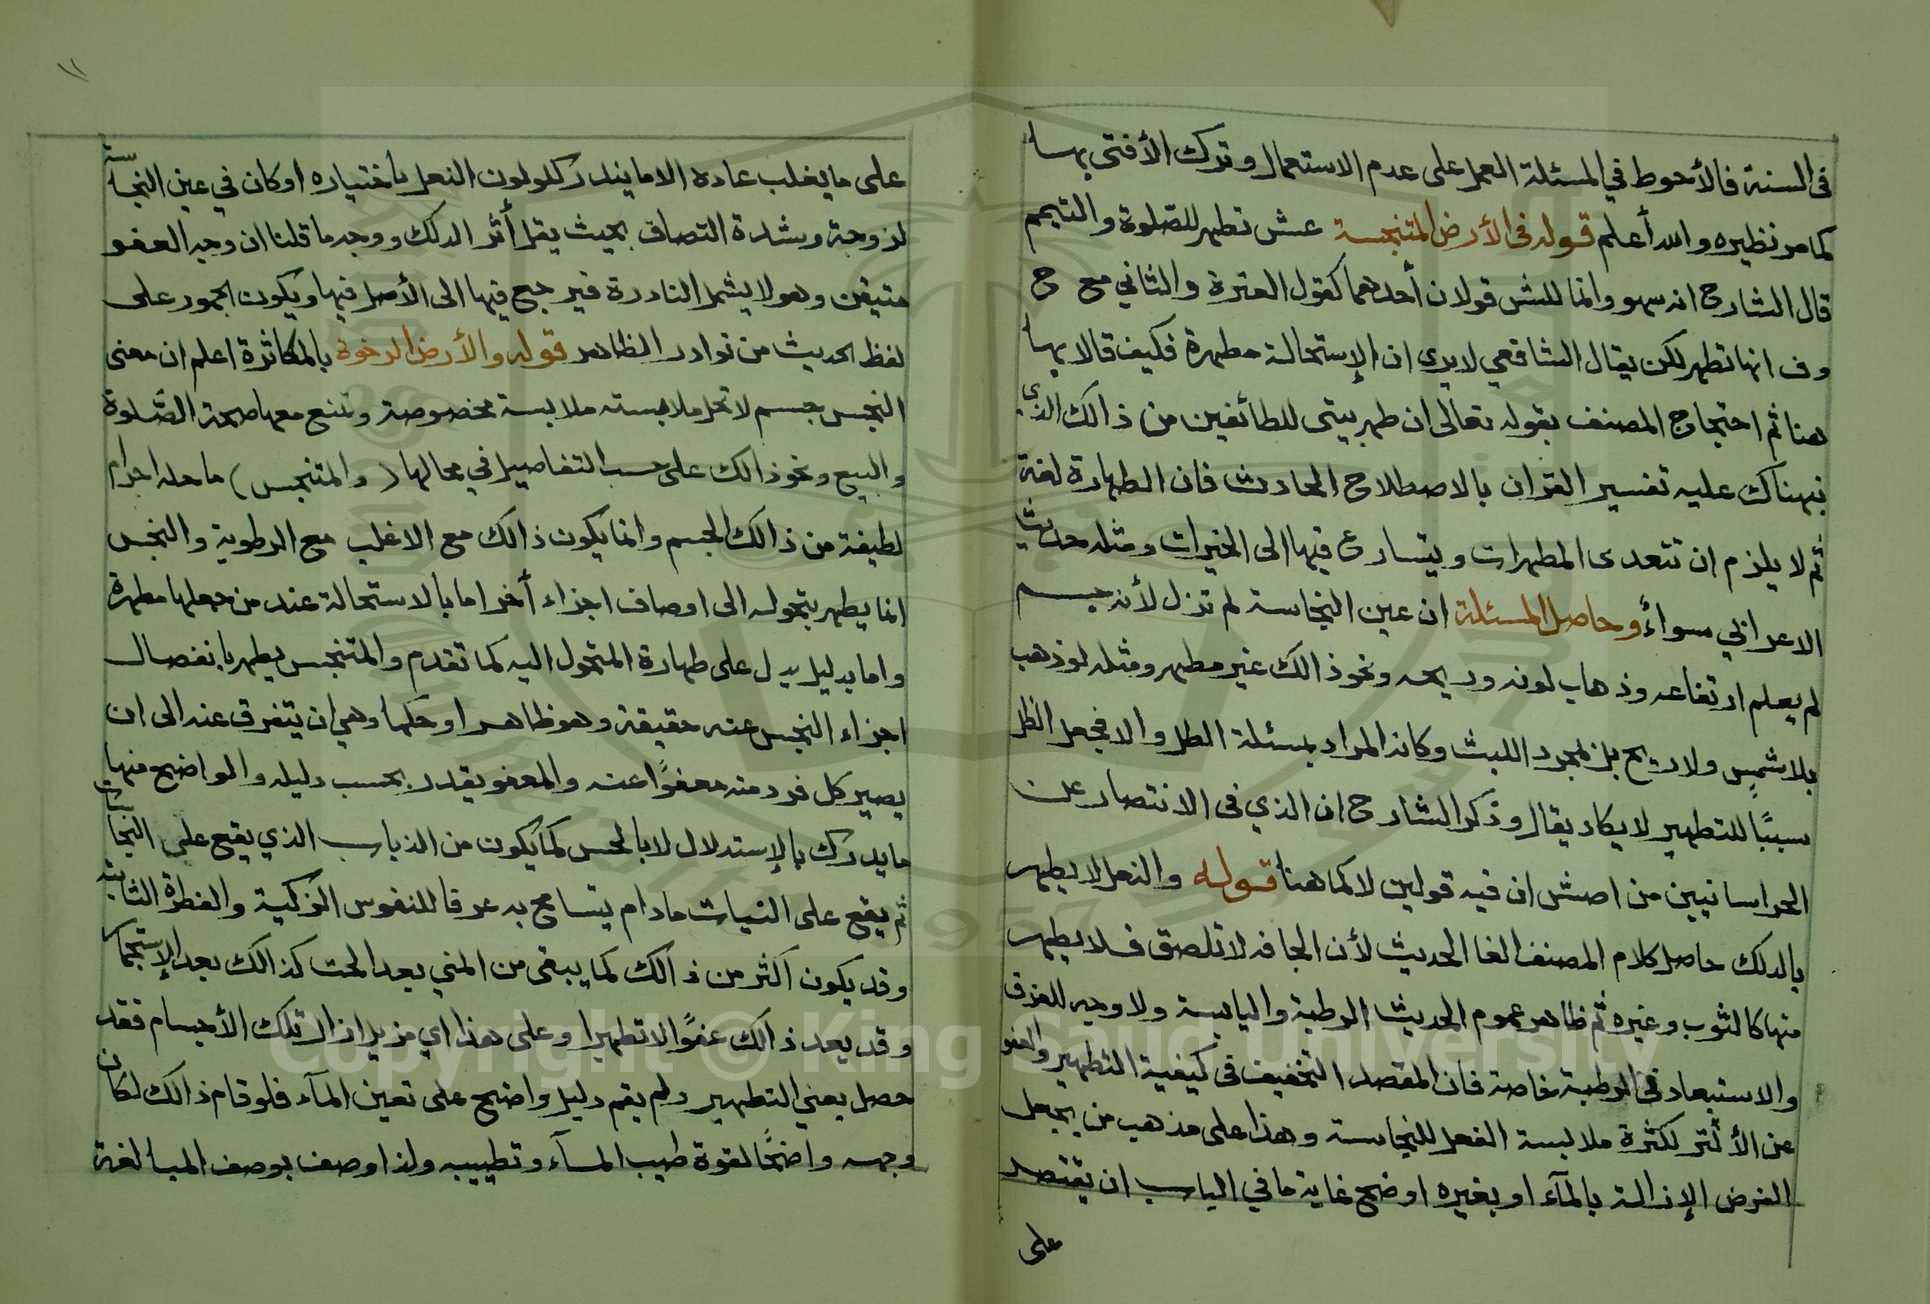 فى السنة فالأحوط في المسئلة العمل على عدم الاستعمال وترك الأفتى بها
كما مر نظيره والله أعلم قوله فى الأرض المتنجسة عش تطهر للصلوة والتيمم
قال الشارح انه سهو وانما للش قولان أحدهما كقول العترة والثاني مع ح
وف انها تطهر لكن يقال الشافعي لا يرى ان الإستحالة مطهرة فكيف قالا بها
هنا ثم احتجاج المصنف بقوله تعالى ان طهر بيتى للطائفين من ذالك الذي
نبهناك عليه تفسير القرآن بالاصطلاح الحادث فان الطهارة لغة
ثم لا يلزم ان تتعدى المطهرات ويتسارع فيها الى الخيرات ومثله حديث
الاعرابي سواءً وحاصل المسئلة ان عين النجاسة لم تزل لأنه جسم
لم يعلم ارتفاعه وذهاب لونه وريحه ونحو ذالك غير مطهر ومثله لو ذهب
بلا شمس ولا ريح بل بمجرد اللبث وكانه المراد بمسئلة الظل والا فجعل الظل
سببًا للتطهير لا يكاد يقال وذكر الشارح ان الذي فى الانتصار عن
الخراسانيين من اصش ان فيه قولين لا كما هنا قوله والنعل لا يطهر
بالدلك حاصل كلام المصنف الغا الحديث لأن الجافه لا تلصق فلا يطهر
منها كالثوب وغيره ثم ظاهر عموم الحديث الرطبة واليابسة ولا وجه للفرق
والاستبعاد فى الرطبة خاصة فان المقصد التخفيف فى كيفية التطهير والعفو
عن الأثر لكثرة ملابسة النعل للنجاسة وهذا على مذهب من يجعل
الفرض الإزالة بالمآء او بغيره اوضح غاية ما في الباب ان يقتصد
على
١١
على ما يغلب عادة الا ما يندر كلو لوث النعل باختياره او كان في عين النجاسة
لزوجة وشدة التصاق بحيث يقل أثر الدلك ووجه ما قلنا ان وجه العفو
متيقن وهو لا يشمل النادرة فيرجع فيها الى الأصل فيها ويكون الجمود على
لفظ الحديث من نوادر الظاهر قوله والأرض الرخوة بالمكاثرة اعلم ان معنى
النجس جسم لا تحل ملابسته ملابسة مخصوصة وتمنع معها صحة الصَّلوة
والبيع ونحو ذالك على حسب التفاصيل في محالها (والمتنجس) ما حله اجزاء
لطيفة من ذالك الجسم وانما يكون ذالك مع الاغلب مع الرطوبة والنجس
انما يطهر بتحوله الى اوصاف اجزاء أخر اما بالاستحالة عند من جعلها مطهرة
واما بدليل يدل على طهارة المتحول اليه كما تقدم والمتنجس يطهر بانفصال
اجزاء النجس عنه حقيقة وهو ظاهر او حكما وهي ان يتفرق عنه الى ان
يصير كل فرد منه معفوًا عنه والمعفو يقدر بحسب دليله والمواضيع منها
ما يدرك بالإستدلال لا بالحس كما يكون من الذباب الذي يقع على النجاسات
ثم يقع على الثيات مادام يتسامح به عرفا للنفوس الزكية والفطرة الثابتة
وقد يكون اكثر من ذالك كما يبقى من المني بعد الحت كذالك بعد الإستجمار
وقد يعد ذالك عفوًا لا تطهيرا وعلى هذا اي مزيل ازال تلك الأجسام فقد
حصل يعني التطهير ولم يقم دليل واضح على تعين المآء فلو قام ذالك لكان
وجهه واضحًا لقوة طيب المآء وتطييبه ولذا وصف بوصف المبالغة
Copyright © King Saud University